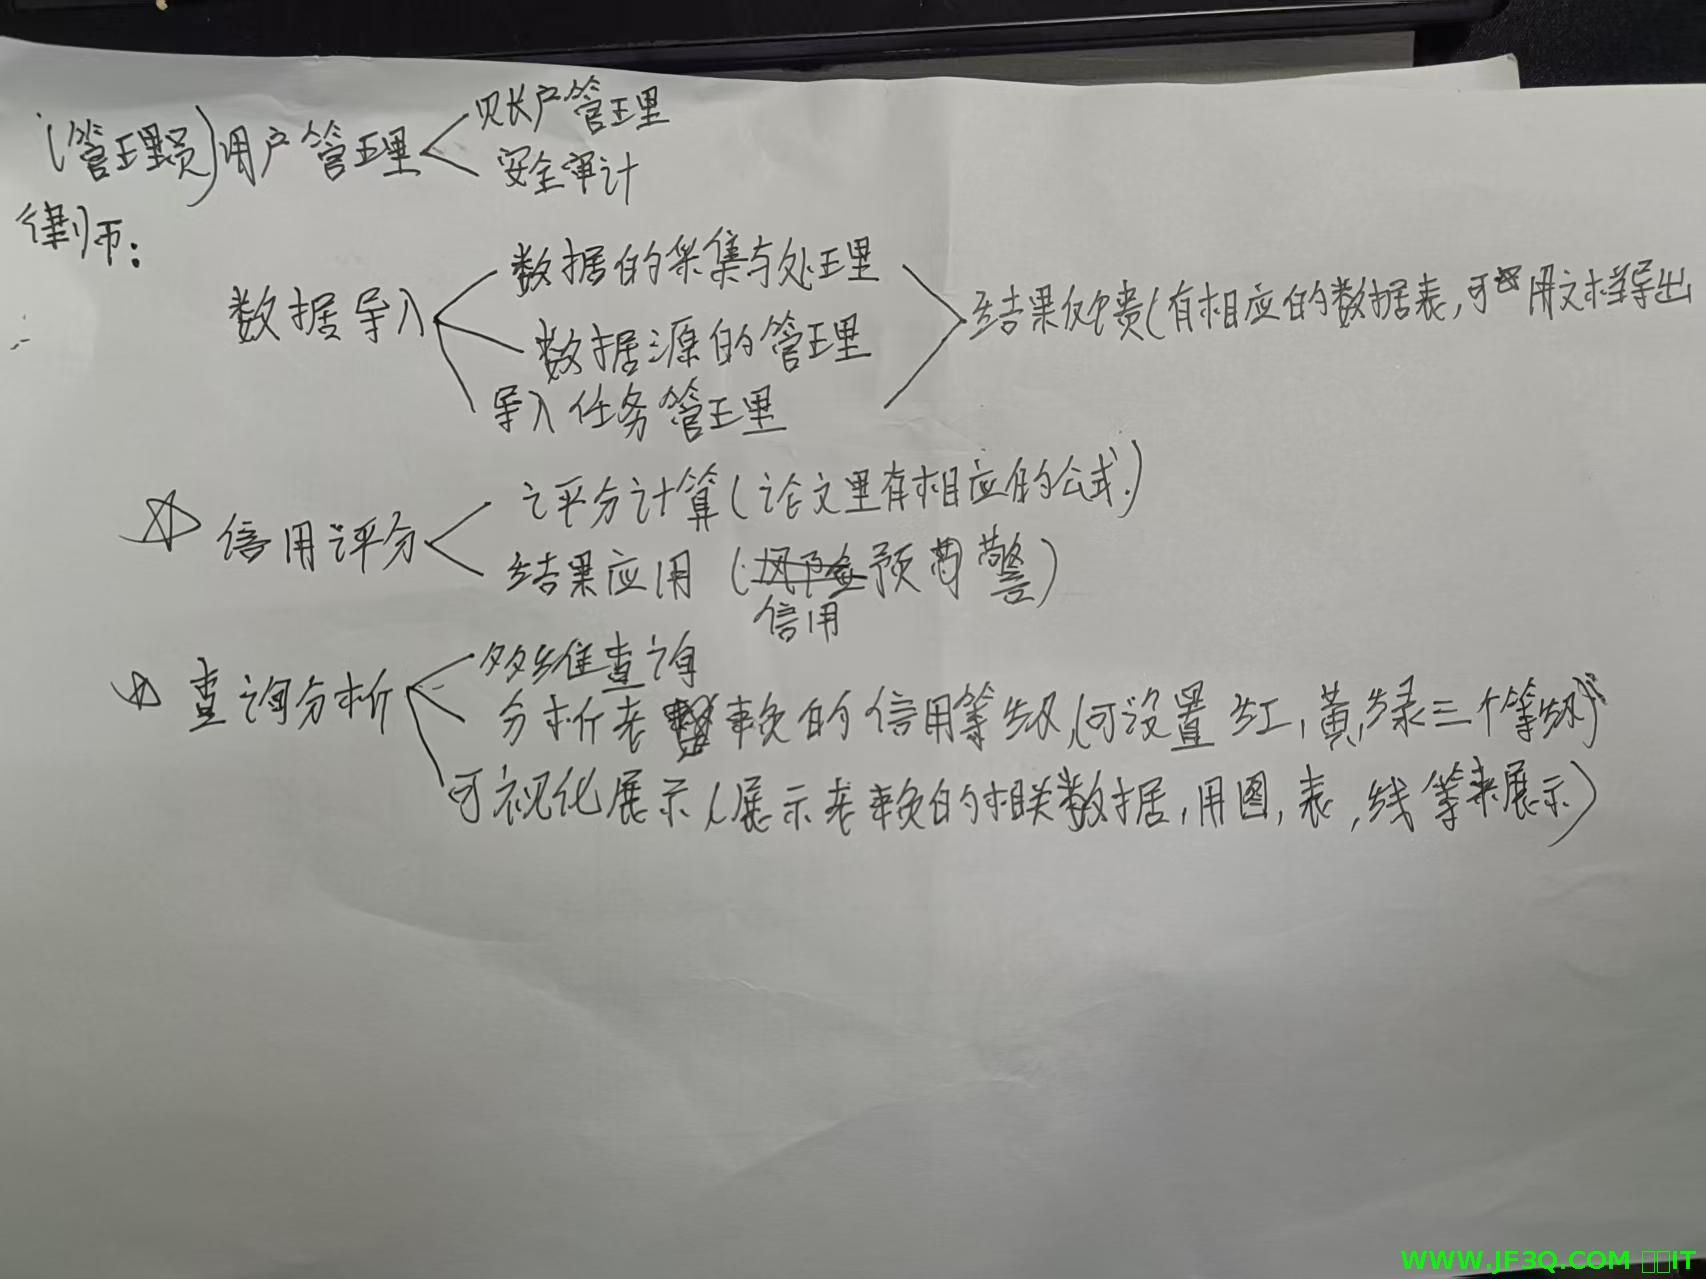 (管理员)用户管理
账户管理
安全审计
律师:
数据导入
数据的采集与处理
数据源的管理
导入任务管理
结果反馈(有相应的数据表,可用文档导出
☆ 信用评分
评分计算(论文里有相应的公式.)
结果应用(风险预警)
信用
☆ 查询分析
多维查询
分析老赖的信用等级,(可设置红,黄,绿三个等级)
可视化展示(展示老赖的相关数据,用图,表,线等来展示)
WWW.JF3Q.COM IT